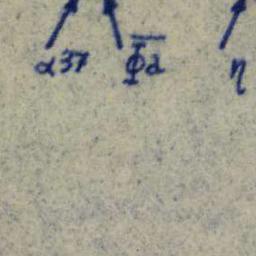 α37 Φd η